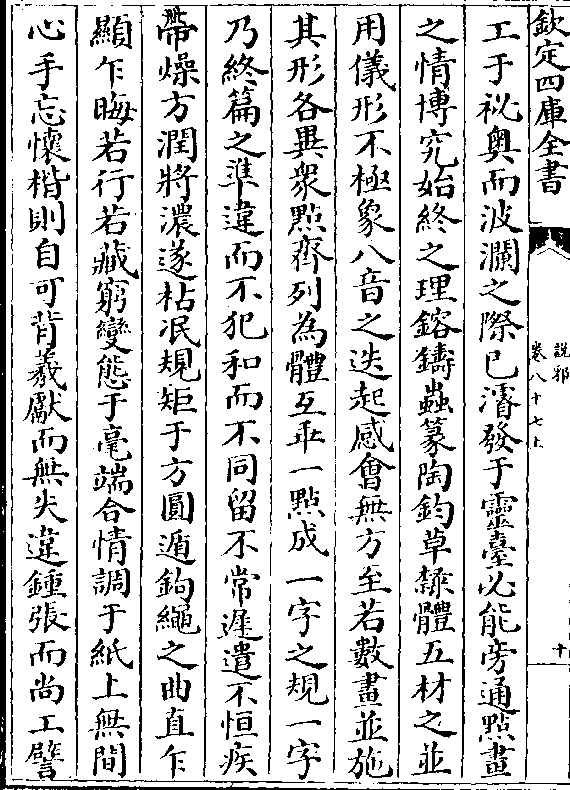 欽定四庫全書
說郛
卷八十七上
十
工于祕奥而波瀾之際已濬發于靈臺必能旁通點畫
之情博究始終之理鎔鑄蟲篆陶鈞草𣜩體五材之並
用儀形不極象八音之迭起感會無方至若數畫並施
其形各異衆㸃齊列為體互乖一㸃成一字之規一字
乃終篇之準違而不犯和而不同留不常遲遣不恒疾
帶燥方潤將濃遂枯泯規矩于方圓遁鈎繩之曲直乍
顯乍晦若行若藏窮變態于毫端合情調于紙上無間
心手忘懷楷則自可背羲獻而無失違鍾張而尚工譬